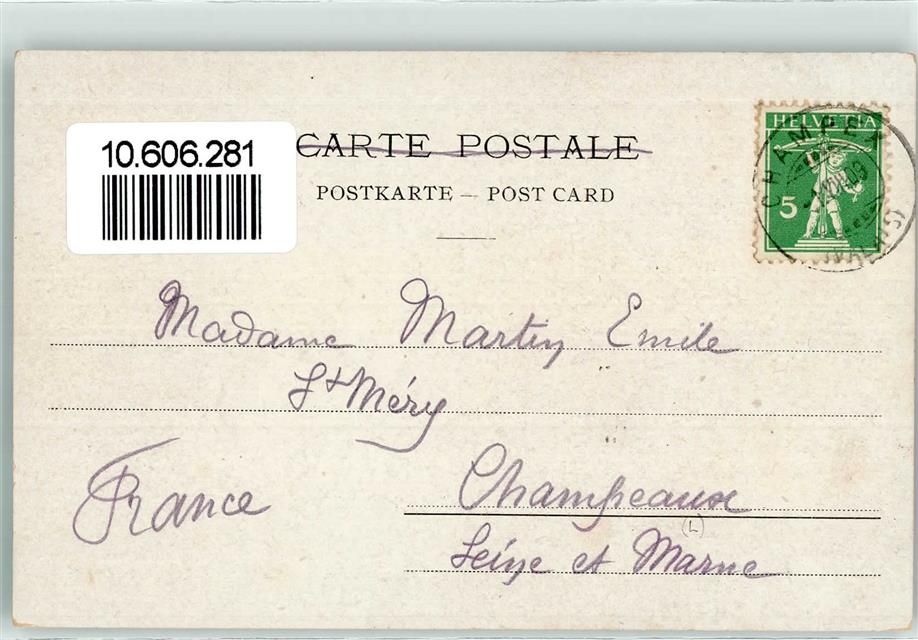 10.606.281
CARTE POSTALE
POSTKARTE — POST CARD
HELVETIA
5
CHAMPEX
(VALAIS)
Madame Martin Emile
St Méry
France
Champeaux
(L)
Seine et Marne